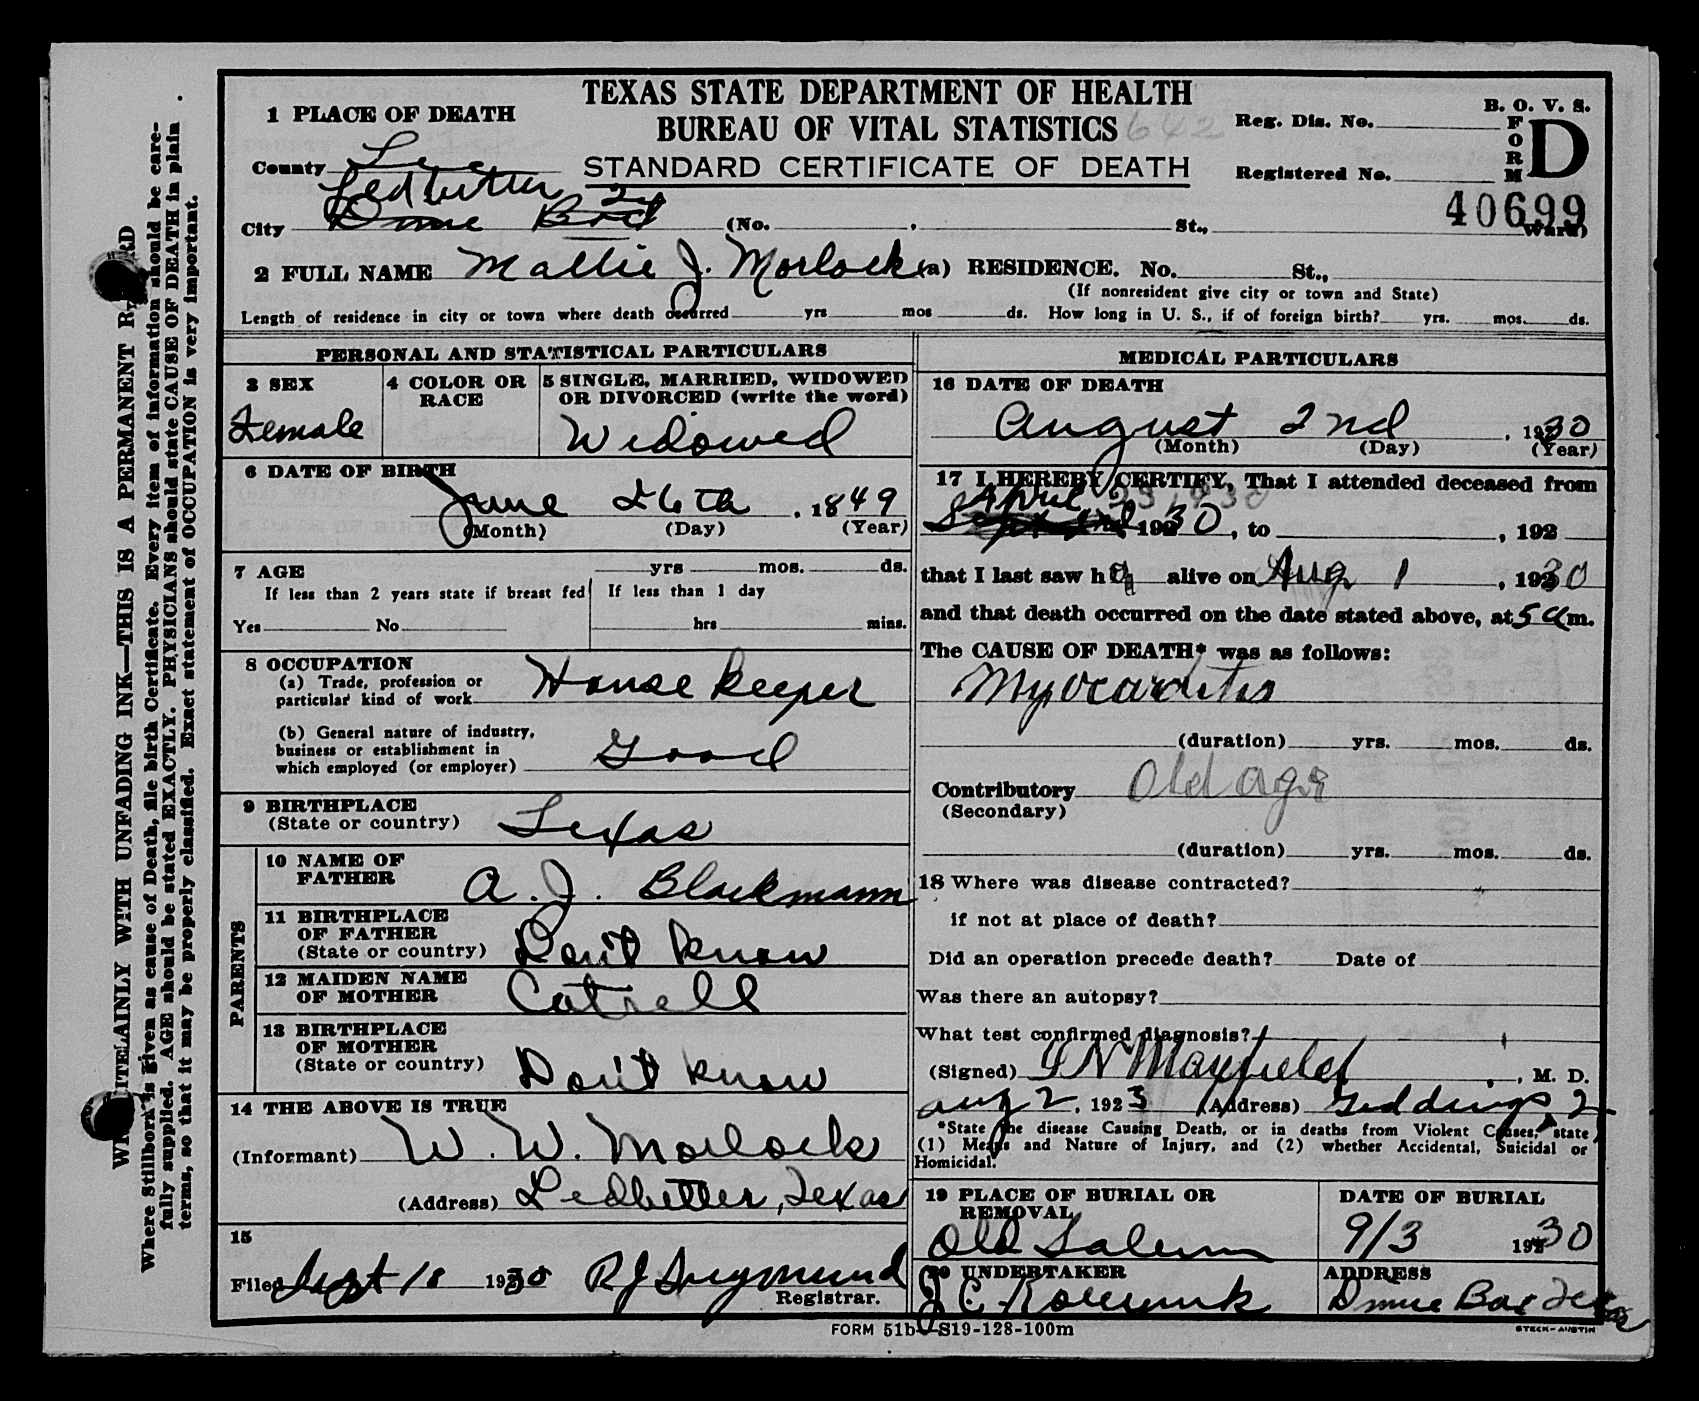 TEXAS STATE DEPARTMENT OF HEALTH
BUREAU OF VITAL STATISTICS 642
STANDARD CERTIFICATE OF DEATH
B. O. V. S.
FORM D
Reg. Dis. No.
Registered No.
40699
1 PLACE OF DEATH
County Lee
Ledbetter
City Dime Box (No. , St., Ward)
2 FULL NAME Mattie J. Morlock (a) RESIDENCE. No. St.,
(If nonresident give city or town and State)
Length of residence in city or town where death occurred yrs mos ds. How long in U. S., if of foreign birth? yrs. mos. ds.
PERSONAL AND STATISTICAL PARTICULARS
3 SEX
Female
4 COLOR OR RACE
5 SINGLE, MARRIED, WIDOWED
OR DIVORCED (write the word)
Widowed
6 DATE OF BIRTH
June 26th , 1849
(Month) (Day) (Year)
7 AGE yrs mos. ds.
If less than 2 years state if breast fed If less than 1 day
Yes No hrs mins.
8 OCCUPATION
(a) Trade, profession or
particular kind of work House keeper
(b) General nature of industry,
business or establishment in
which employed (or employer) Good
9 BIRTHPLACE
(State or country) Texas
PARENTS
10 NAME OF
FATHER A. J. Blackmann
11 BIRTHPLACE
OF FATHER
(State or country) Don't know
12 MAIDEN NAME
OF MOTHER Cotrell
13 BIRTHPLACE
OF MOTHER
(State or country) Don't know
14 THE ABOVE IS TRUE
(Informant) W. W. Morlock
(Address) Ledbetter, Texas
15
Filed Sept 18 1930
Registrar.
MEDICAL PARTICULARS
16 DATE OF DEATH
August 2nd , 1930
(Month) (Day) (Year)
17 I HEREBY CERTIFY, That I attended deceased from
April 23, 1930
1930, to , 192
that I last saw h alive on Aug 1 , 1930
and that death occurred on the date stated above, at 5 a m.
The CAUSE OF DEATH* was as follows:
Myocarditis
(duration) yrs. mos. ds.
Contributory Old age
(Secondary)
(duration) yrs. mos. ds.
18 Where was disease contracted?
if not at place of death?
Did an operation precede death? Date of
Was there an autopsy?
What test confirmed diagnosis?
(Signed) Mayfield , M. D.
Aug 2, 1923 (Address) Giddings,
*State the disease Causing Death, or in deaths from Violent Causes, state
(1) Means and Nature of Injury, and (2) whether Accidental, Suicidal or
Homicidal.
19 PLACE OF BURIAL OR
REMOVAL
Old Salem
DATE OF BURIAL
9/3 1930
20 UNDERTAKER
J. C.
ADDRESS
Dime Box Texas
FORM 51b—S19-128-100m
STECK-AUSTIN
WRITE PLAINLY WITH UNFADING INK—THIS IS A PERMANENT RECORD
Where Stillborn is given as cause of Death, file birth Certificate. Every item of information should be care-
fully supplied. AGE should be stated EXACTLY. PHYSICIANS should state CAUSE OF DEATH in plain
terms, so that it may be properly classified. Exact statement of OCCUPATION is very important.